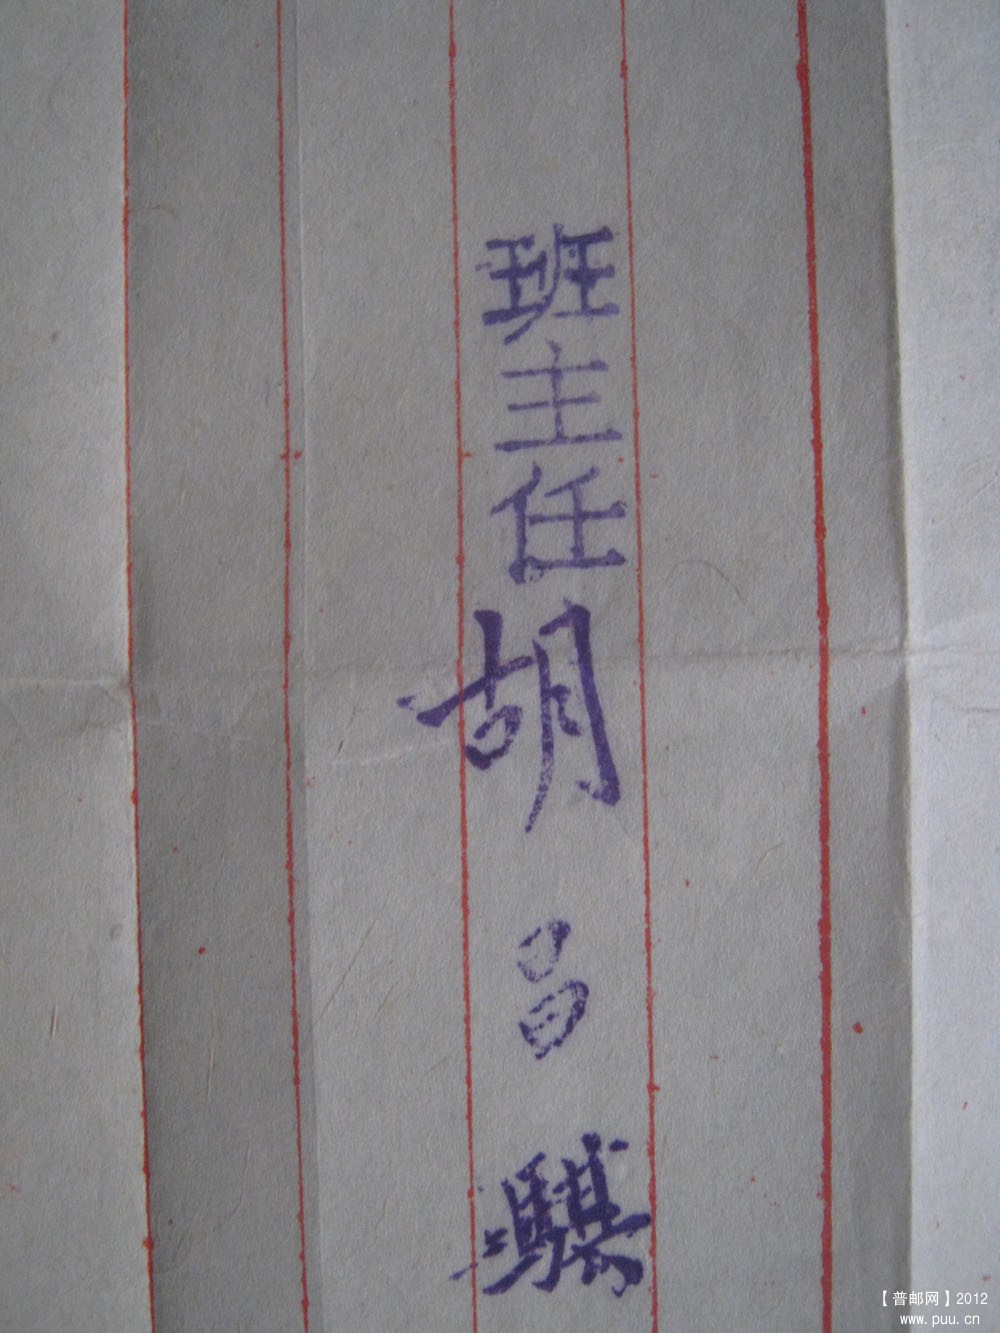 班主任胡昌騏
【普邮网】2012
www.puu.cn